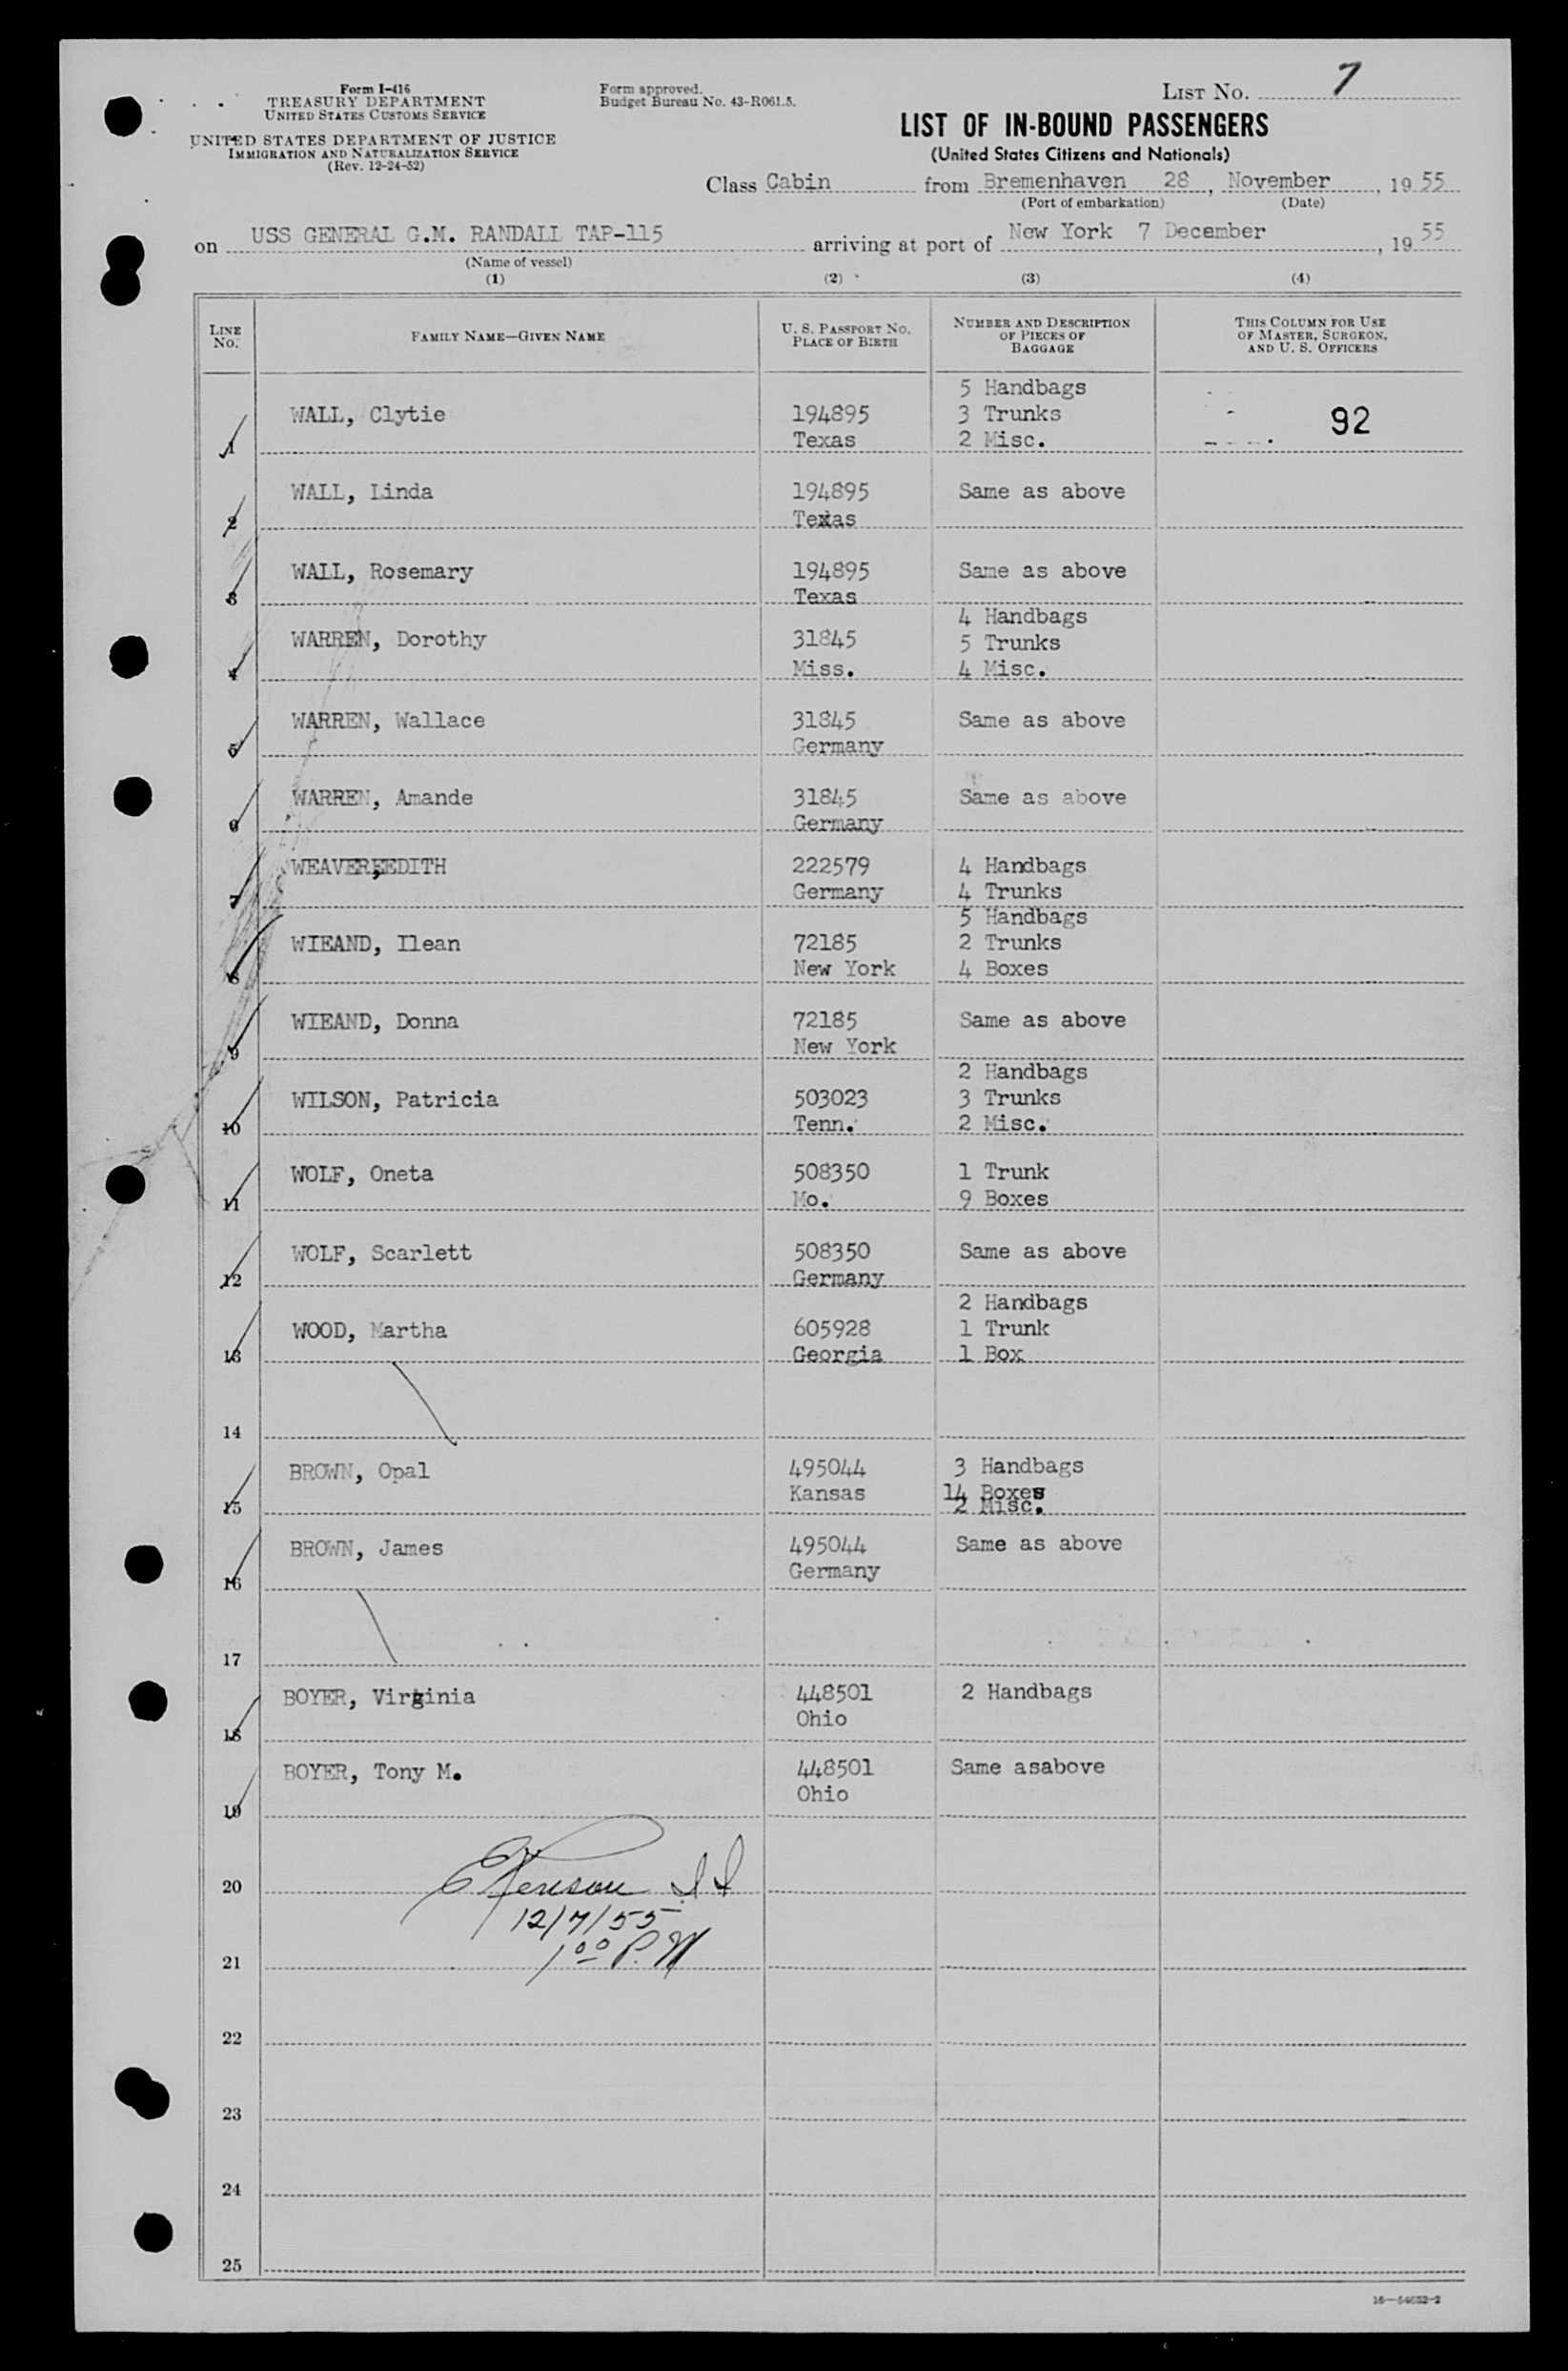 Form I-416
TREASURY DEPARTMENT
UNITED STATES CUSTOMS SERVICE
UNITED STATES DEPARTMENT OF JUSTICE
IMMIGRATION AND NATURALIZATION SERVICE
(Rev. 12-24-52)
Form approved.
Budget Bureau No. 43-R061.5.
LIST NO. 7
LIST OF IN-BOUND PASSENGERS
(United States Citizens and Nationals)
Class Cabin from Bremenhaven 28, November, 1955
(Port of embarkation) (Date)
on USS GENERAL G.M. RANDALL TAP-115 arriving at port of New York 7 December, 1955
(Name of vessel)
(1) (2) (3) (4)
LINE NO. FAMILY NAME—GIVEN NAME U. S. PASSPORT NO. PLACE OF BIRTH NUMBER AND DESCRIPTION OF PIECES OF BAGGAGE THIS COLUMN FOR USE OF MASTER, SURGEON, AND U. S. OFFICERS
5 Handbags
WALL, Clytie 194895 3 Trunks 92
1 Texas 2 Misc.
WALL, Linda 194895 Same as above
2 Texas
WALL, Rosemary 194895 Same as above
3 Texas
4 Handbags
WARREN, Dorothy 31845 5 Trunks
4 Miss. 4 Misc.
WARREN, Wallace 31845 Same as above
5 Germany
WARREN, Amande 31845 Same as above
6 Germany
WEAVER,EDITH 222579 4 Handbags
7 Germany 4 Trunks
5 Handbags
WIEAND, Ilean 72185 2 Trunks
8 New York 4 Boxes
WIEAND, Donna 72185 Same as above
9 New York
2 Handbags
WILSON, Patricia 503023 3 Trunks
10 Tenn. 2 Misc.
WOLF, Oneta 508350 1 Trunk
11 Mo. 9 Boxes
WOLF, Scarlett 508350 Same as above
12 Germany
2 Handbags
WOOD, Martha 605928 1 Trunk
13 Georgia 1 Box
14
BROWN, Opal 495044 3 Handbags
Kansas 14 Boxes
15 2 Misc.
BROWN, James 495044 Same as above
16 Germany
17
BOYER, Virginia 448501 2 Handbags
18 Ohio
BOYER, Tony M. 448501 Same asabove
19 Ohio
20
12/7/55
1 00 P.M
21
22
23
24
25
16—54652-2